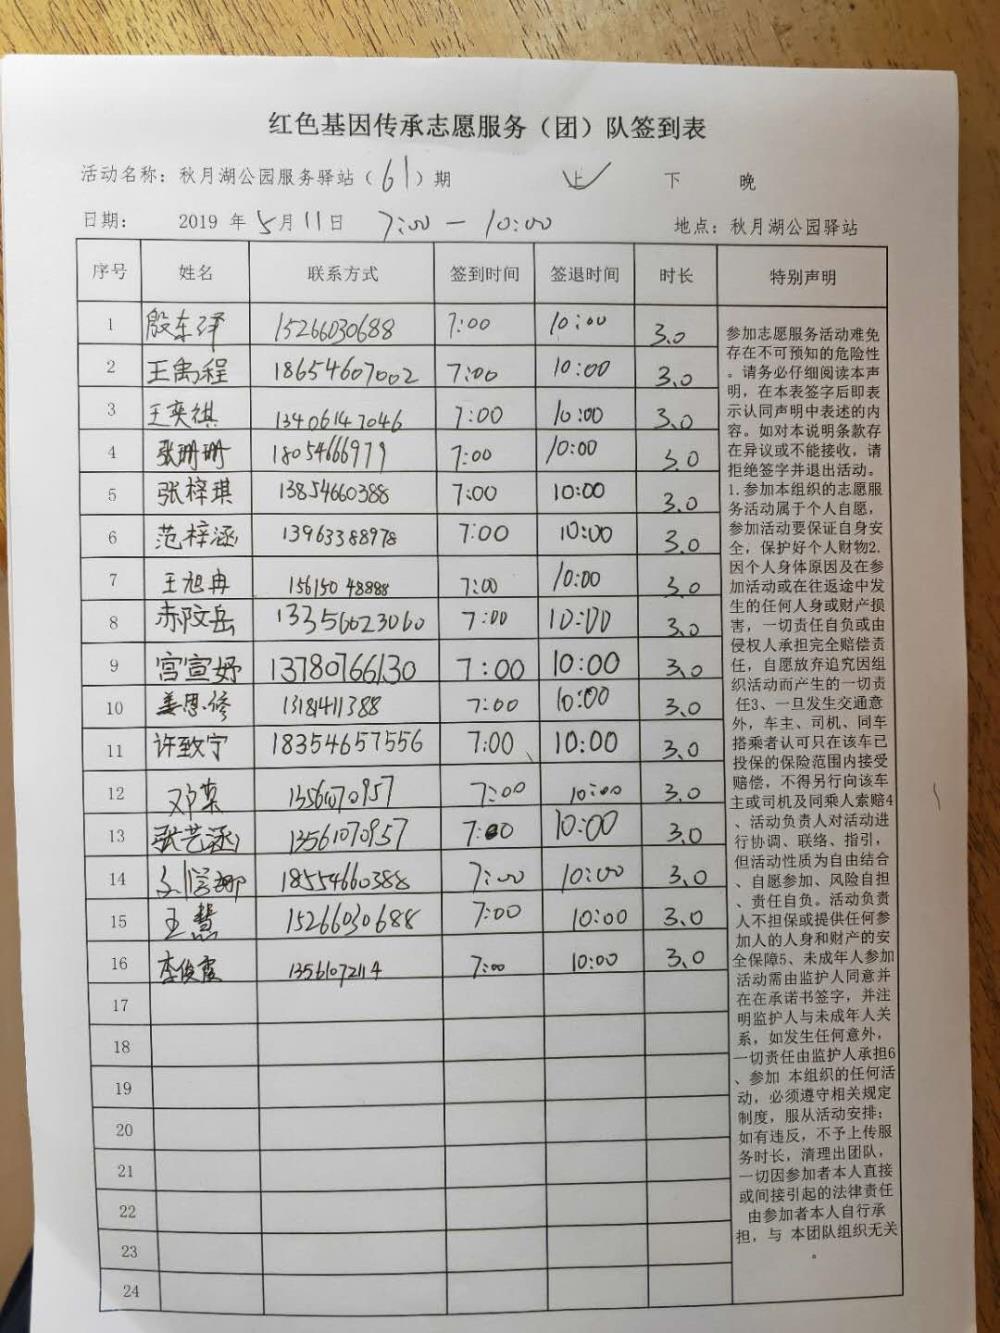 红色基因传承志愿服务（团）队签到表
活动名称：秋月湖公园服务驿站（61）期 上 下 晚
日期： 2019 年 5月 11日 7:00 — 10:00 地点：秋月湖公园驿站
序号 姓名 联系方式 签到时间 签退时间 时长 特别声明
1 殷东泽 15266030688 7:00 10:00 3.0
2 王禹程 18654607002 7:00 10:00 3.0
3 王奕祺 13406147046 7:00 10:00 3.0
4 张珊珊 18054666979 7:00 10:00 3.0
5 张梓琪 13854660388 7:00 10:00 3.0
6 范梓涵 13963388978 7:00 10:00 3.0
7 王旭冉 15615048888 7:00 10:00 3.0
8 13356623060 7:00 10:00 3.0
9 宫宣妤 13780766130 7:00 10:00 3.0
10 姜恩修 1318411388 7:00 10:00 3.0
11 许致宁 18354657556 7:00 10:00 3.0
12 邓荣 7:00 10:00 3.0
13 张艺涵 13561070957 7:00 10:00 3.0
14 18554660388 7:00 10:00 3.0
15 王慧 15266030688 7:00 10:00 3.0
16 李俊霞 13561072114 7:00 10:00 3.0
17
18
19
20
21
22
23
24
参加志愿服务活动难免
存在不可预知的危险性
。请务必仔细阅读本声
明，在本表签字后即表
示认同声明中表述的内
容。如对本说明条款存
在异议或不能接收，请
拒绝签字并退出活动。
1.参加本组织的志愿服
务活动属于个人自愿，
参加活动要保证自身安
全，保护好个人财物2.
因个人身体原因及在参
加活动或在往返途中发
生的任何人身或财产损
害，一切责任自负或由
侵权人承担完全赔偿责
任，自愿放弃追究因组
织活动而产生的一切责
任3、一旦发生交通意
外，车主、司机、同车
搭乘者认可只在该车已
投保的保险范围内接受
赔偿，不得另行向该车
主或司机及同乘人索赔4
、活动负责人对活动进
行协调、联络、指引，
但活动性质为自由结合
、自愿参加、风险自担
、责任自负。活动负责
人不担保或提供任何参
加人的人身和财产的安
全保障5、未成年人参加
活动需由监护人同意并
在在承诺书签字，并注
明监护人与未成年人关
系，如发生任何意外，
一切责任由监护人承担6
、参加 本组织的任何活
动，必须遵守相关规定
制度，服从活动安排；
如有违反，不予上传服
务时长，清理出团队，
一切因参加者本人直接
或间接引起的法律责任
由参加者本人自行承
担，与 本团队组织无关
。